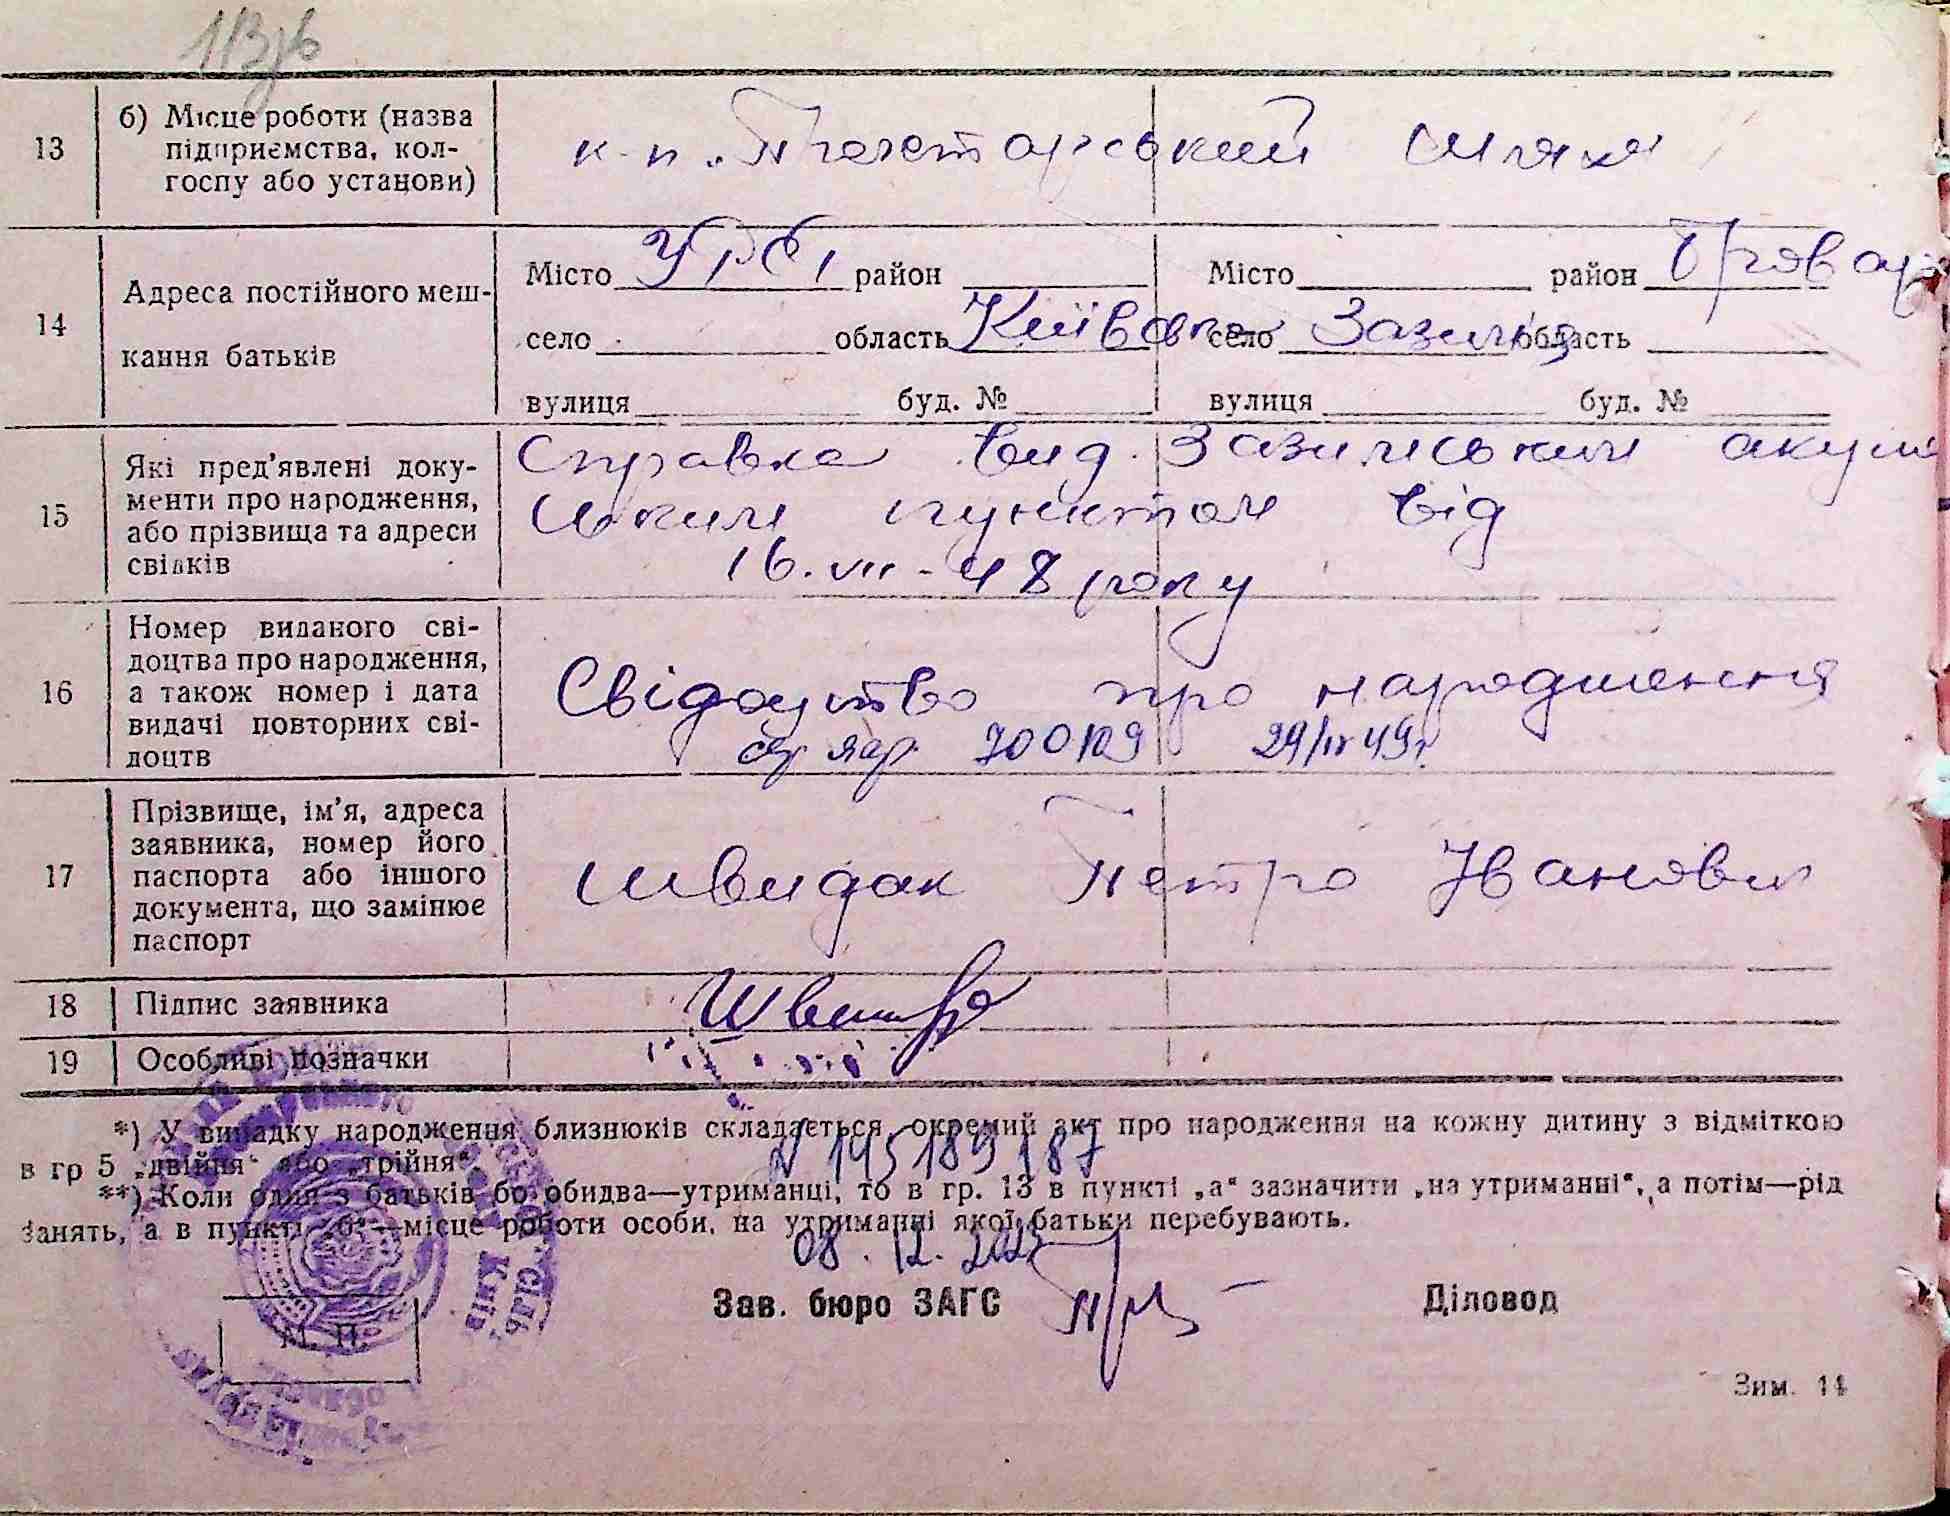 13 б) Місце роботи (назва підприємства, колгоспу або установи) к-п „Пролетарський шлях"
14 Адреса постійного мешкання батьків
Місто УРСР, район Місто район Бровар
село область Київська село Зазим'я область
вулиця буд. № вулиця буд. №
15 Які пред'явлені документи про народження, або прізвища та адреси свідків
Справка вид. Зазимським акуш
ським пунктом від
16.VII-48 року
16 Номер виданого свідоцтва про народження, а також номер і дата видачі повторних свідоцтв
Свідоцтво про народження
700109 29/IV 49г.
17 Прізвище, ім'я, адреса заявника, номер його паспорта або іншого документа, що замінює паспорт
Швидак Петро Іванович
18 Підпис заявника
19 Особливі позначки
*) У випадку народження близнюків складається окремий акт про народження на кожну дитину з відміткою
в гр 5 „двійня" або „трійня".
N 145189187
**) Коли один з батьків бо обидва—утриманці, то в гр. 13 в пункті „а" зазначити „на утриманні", а потім—рід
занять, а в пункті „б"—місце роботи особи, на утриманні якої батьки перебувають.
08.12.2023
Зав. бюро ЗАГС Діловод
М. П.
Зим. 14